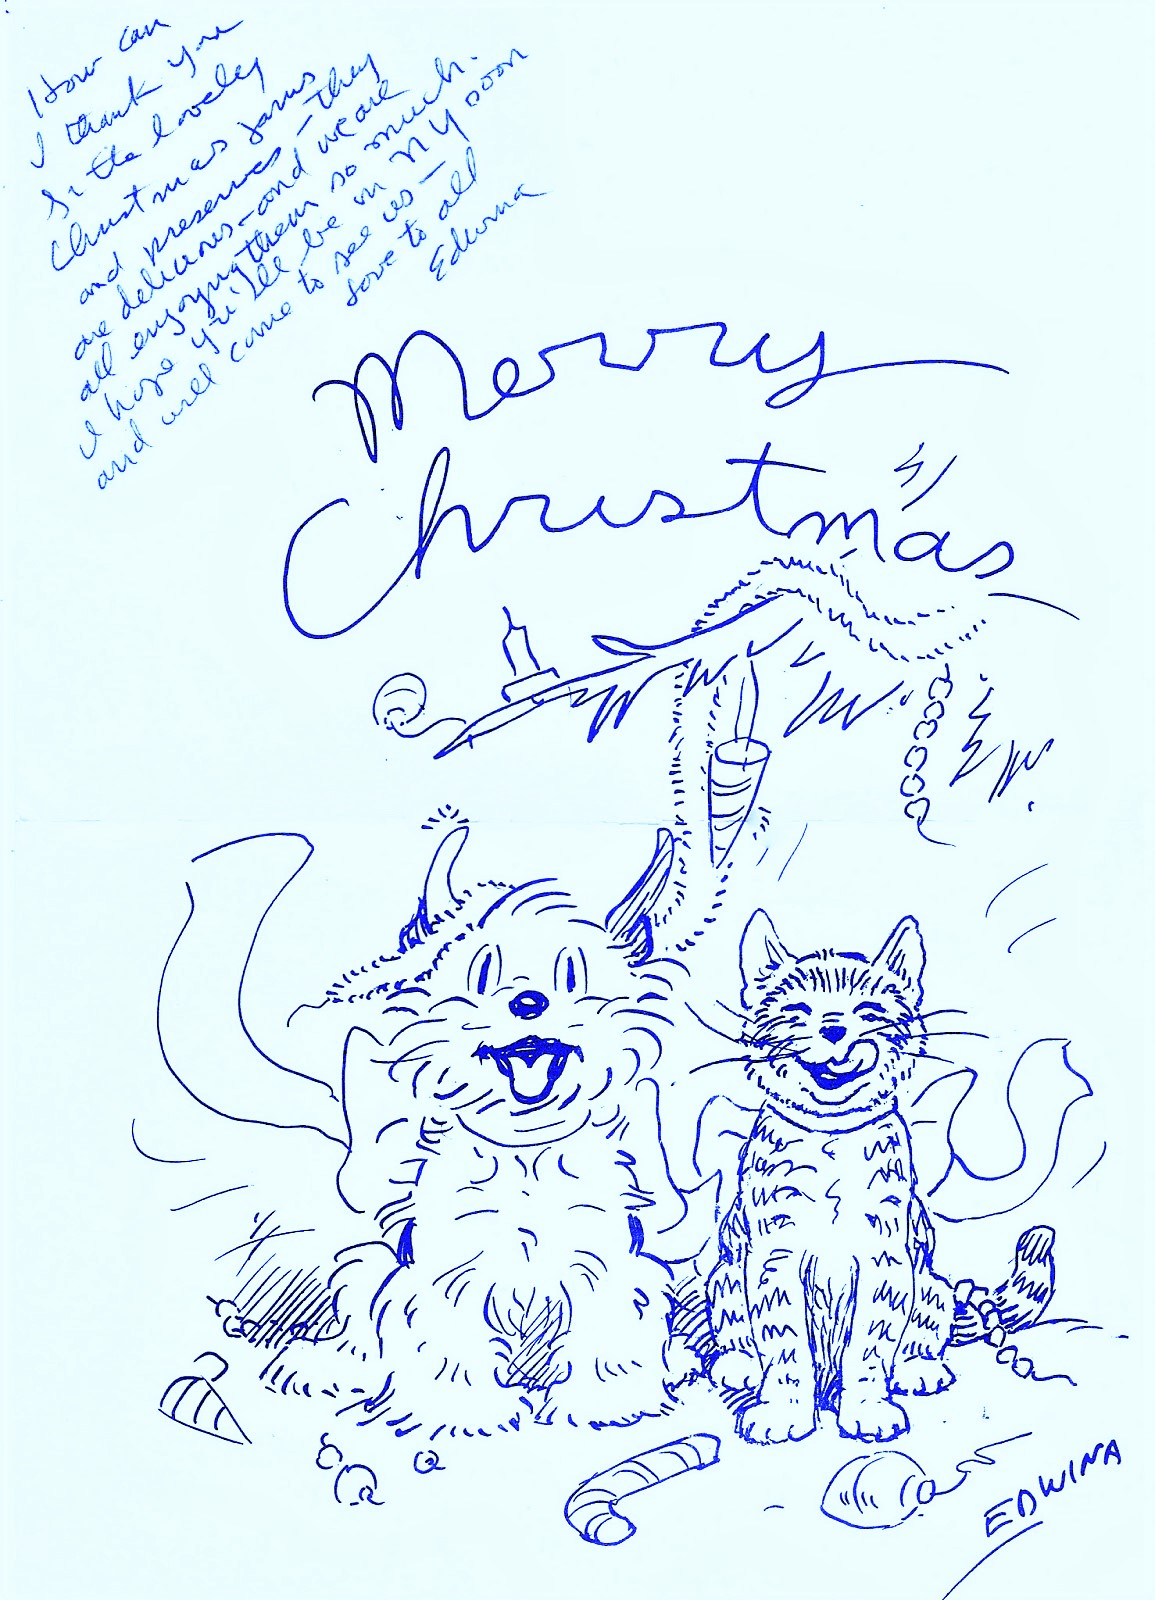 How can
I thank you
for the lovely
Christmas jams
and preserves - they
are delicious - and we are
all enjoying them so much.
I hope you'll be in NY soon
and will come to see us -
love to all
Edwina
Merry
Christmas
EDWINA